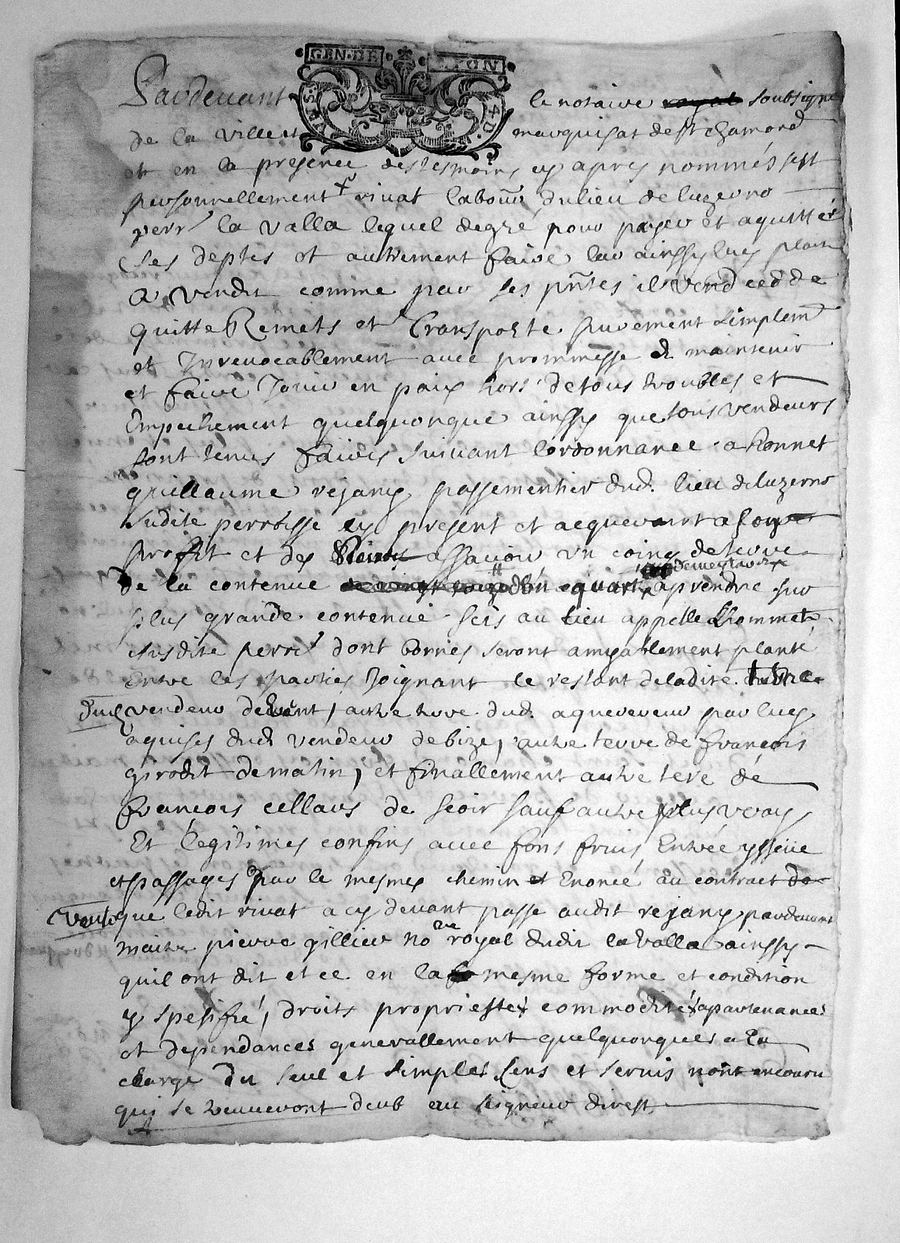 GEN·DE LYON
Pardevant le notaire royal soubsigné
de la ville et marquisat de St chamond
et en la presence des tesmoins cy apres nommés sest
personnellement rivat labour dulieu de luzerno
parr la valla lequel degré pour payer et aquitter
ses deptes et autrement faire luy ainssy luy plait
A vendu comme par ses pntes il vend cedde
quitte Remets et transporte purement simplemt
et Irrevocablement avec prommesse de maintenir
et faire Jouir en paix hors de tous troubles et
Empechement quelquonque ainssy que tous vendeurs
sont tenus faires suivant lordonnance a honnet
guillaume rejany passementier dud. lieu de luzerno
sudite perroisse cy present et acquerant a son
proffit et des siens assavoir un coing de terre
de la contenue dun quart a prendre sur
plus grande contenue scis au lieu appelle Lhommet
susdite perrs dont bornes seront amyablement planté
Entre les parties Joignant le restant deladite terre
dud vendeur de vent, autre terre dud aquereur par luy
aquises dud vendeur de bize, autre terre de francois
girodit de matin, et finallement autre tere de
francois cellaus de seoir sauf autre plus vray
Et legitimes confins avec fons fruis Entrée yssüe
et passages par le mesmes chemin et Enoncé au contract de
vente que ledit rivat a cy devant passe audit rejany pardevant
maitre pierre gillier nore royal dudit lavalla ainssy
quil ont dit et ce en la mesme forme et condition
y spesifié, droits proprietés commodités apartenances
et dependances generallement quelquonques a la
charge du seul et simples Cens et servis non encouru
qui se treuveront deub au seigneur direct